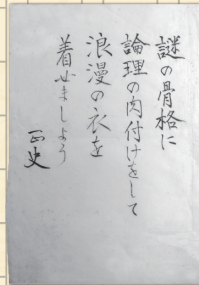 謎の骨格に
論理の肉付けをして
浪漫の衣を
着せましょう
正史